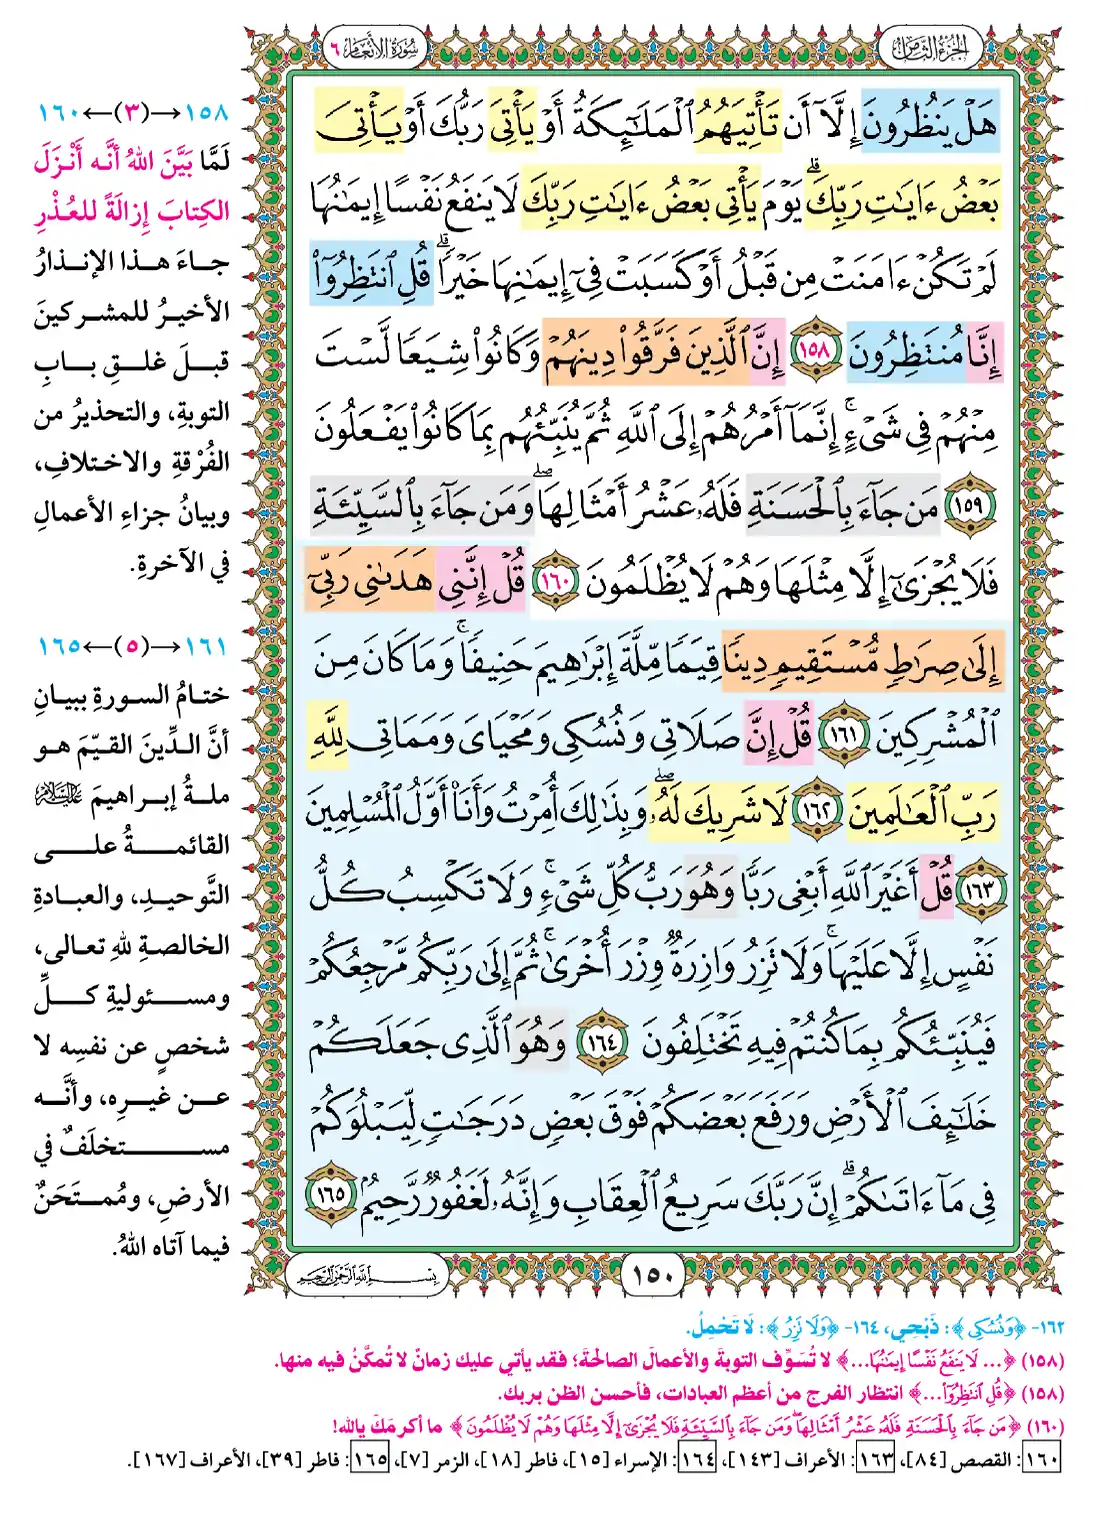 الجزء الثامن
سورة الأنعام ٦
هَلْ يَنظُرُونَ إِلَّآ أَن تَأْتِيَهُمُ ٱلْمَلَـٰٓئِكَةُ أَوْ يَأْتِىَ رَبُّكَ أَوْ يَأْتِىَ
بَعْضُ ءَايَـٰتِ رَبِّكَ ۗ يَوْمَ يَأْتِى بَعْضُ ءَايَـٰتِ رَبِّكَ لَا يَنفَعُ نَفْسًا إِيمَـٰنُهَا
لَمْ تَكُنْ ءَامَنَتْ مِن قَبْلُ أَوْ كَسَبَتْ فِىٓ إِيمَـٰنِهَا خَيْرًا ۗ قُلِ ٱنتَظِرُوٓا۟
إِنَّا مُنتَظِرُونَ ١٥٨ إِنَّ ٱلَّذِينَ فَرَّقُوا۟ دِينَهُمْ وَكَانُوا۟ شِيَعًا لَّسْتَ
مِنْهُمْ فِى شَىْءٍ ۚ إِنَّمَآ أَمْرُهُمْ إِلَى ٱللَّهِ ثُمَّ يُنَبِّئُهُم بِمَا كَانُوا۟ يَفْعَلُونَ
١٥٩ مَن جَآءَ بِٱلْحَسَنَةِ فَلَهُۥ عَشْرُ أَمْثَالِهَا ۖ وَمَن جَآءَ بِٱلسَّيِّئَةِ
فَلَا يُجْزَىٰٓ إِلَّا مِثْلَهَا وَهُمْ لَا يُظْلَمُونَ ١٦٠ قُلْ إِنَّنِى هَدَىٰنِى رَبِّىٓ
إِلَىٰ صِرَٰطٍ مُّسْتَقِيمٍ دِينًا قِيَمًا مِّلَّةَ إِبْرَٰهِيمَ حَنِيفًا ۚ وَمَا كَانَ مِنَ
ٱلْمُشْرِكِينَ ١٦١ قُلْ إِنَّ صَلَاتِى وَنُسُكِى وَمَحْيَاىَ وَمَمَاتِى لِلَّهِ
رَبِّ ٱلْعَـٰلَمِينَ ١٦٢ لَا شَرِيكَ لَهُۥ ۖ وَبِذَٰلِكَ أُمِرْتُ وَأَنَا۠ أَوَّلُ ٱلْمُسْلِمِينَ
١٦٣ قُلْ أَغَيْرَ ٱللَّهِ أَبْغِى رَبًّا وَهُوَ رَبُّ كُلِّ شَىْءٍ ۚ وَلَا تَكْسِبُ كُلُّ
نَفْسٍ إِلَّا عَلَيْهَا ۚ وَلَا تَزِرُ وَازِرَةٌ وِزْرَ أُخْرَىٰ ۚ ثُمَّ إِلَىٰ رَبِّكُم مَّرْجِعُكُمْ
فَيُنَبِّئُكُم بِمَا كُنتُمْ فِيهِ تَخْتَلِفُونَ ١٦٤ وَهُوَ ٱلَّذِى جَعَلَكُمْ
خَلَـٰٓئِفَ ٱلْأَرْضِ وَرَفَعَ بَعْضَكُمْ فَوْقَ بَعْضٍ دَرَجَـٰتٍ لِّيَبْلُوَكُمْ
فِى مَآ ءَاتَىٰكُمْ ۗ إِنَّ رَبَّكَ سَرِيعُ ٱلْعِقَابِ وَإِنَّهُۥ لَغَفُورٌ رَّحِيمٌۢ ١٦٥
١٥٠
بسم الله الرحمن الرحيم
١٥٨→(٣)←١٦٠
لَمَّا بَيَّنَ اللهُ أنَّه أَنْزَلَ
الكِتابَ إزالَةً للعُذْرِ
جاءَ هذا الإنذارُ
الأخيرُ للمشركينَ
قبلَ غلقِ بابِ
التوبةِ، والتحذيرُ من
الفُرْقةِ والاختلافِ،
وبيانُ جزاءِ الأعمالِ
في الآخرةِ.
١٦١→(٥)←١٦٥
ختامُ السورةِ ببيانِ
أنَّ الدِّينَ القيّمَ هو
ملةُ إبراهيمَ عليه السلام
القائمةُ على
التَّوحيدِ، والعبادةِ
الخالصةِ للهِ تعالى،
ومسئوليةِ كلِّ
شخصٍ عن نفسِه لا
عن غيرِه، وأنَّه
مستخلَفٌ في
الأرضِ، ومُمتَحَنٌ
فيما آتاه اللهُ.
١٦٢- ﴿وَنُسُكِى﴾: ذَبْحِي، ١٦٤- ﴿وَلَا نَزِرُ﴾: لَا تَحْمِلُ.
(١٥٨) ﴿... لَا يَنفَعُ نَفْسًا إِيمَـٰنُهَا...﴾ لا تُسَوِّف التوبةَ والأعمالَ الصالحةَ؛ فقد يأتي عليك زمانٌ لا تُمكَّنُ فيه منها.
(١٥٨) ﴿قُلِ ٱنتَظِرُوٓا۟...﴾ انتظار الفرج من أعظم العبادات، فأحسن الظن بربك.
(١٦٠) ﴿مَن جَآءَ بِٱلْحَسَنَةِ فَلَهُۥ عَشْرُ أَمْثَالِهَا ۖ وَمَن جَآءَ بِٱلسَّيِّئَةِ فَلَا يُجْزَىٰٓ إِلَّا مِثْلَهَا وَهُمْ لَا يُظْلَمُونَ﴾ ما أكرمَكَ يالله!
١٦٠: القصص [٨٤]، ١٦٣: الأعراف [١٤٣]، ١٦٤: الإسراء [١٥]، فاطر [١٨]، الزمر [٧]، ١٦٥: فاطر [٣٩]، الأعراف [١٦٧].